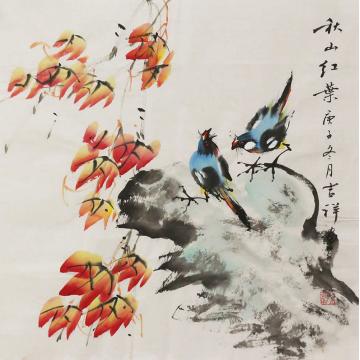 秋山红葉庚子冬月吉祥